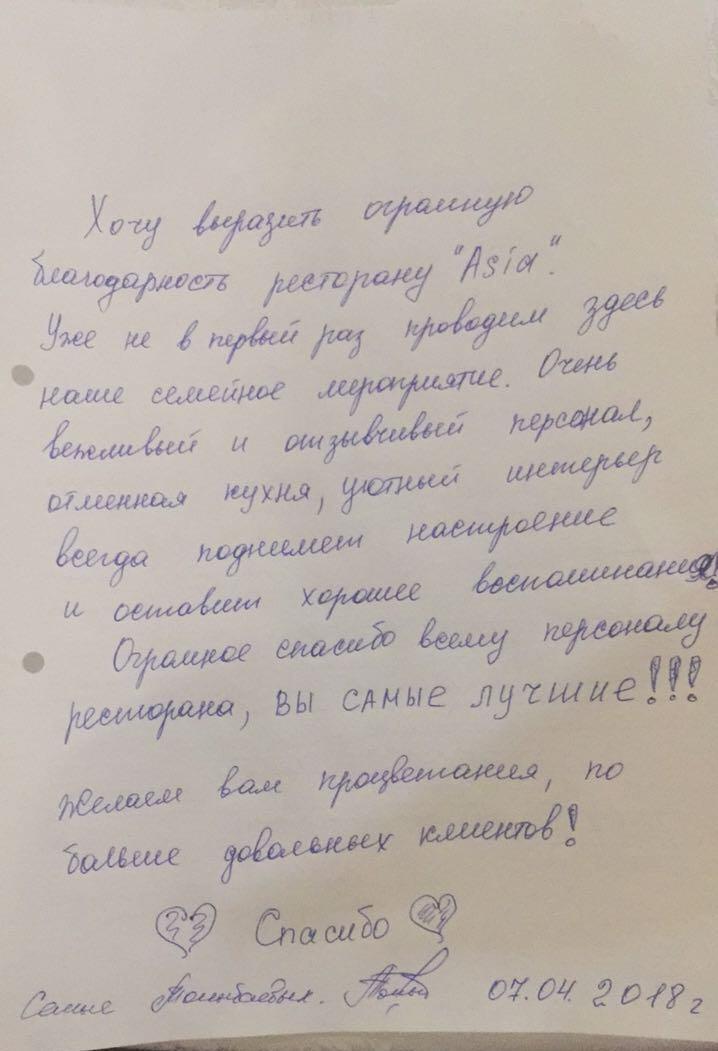 Хочу выразить огромную
благодарность ресторану "Asia".
Уже не в первый раз проводим здесь
наше семейное мероприятие. Очень
вежливый и отзывчивый персонал,
отменная кухня, уютный интерьер
всегда поднимет настроение
и оставит хорошее воспоминание!
Огромное спасибо всему персоналу
ресторана, ВЫ САМЫЕ ЛУЧШИЕ!!!
Желаем вам процветания, по
больше довольных клиентов!
Спасибо
07.04.2018г